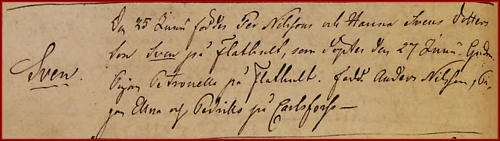 Den 25 Junii föddes Per Nilssons och Hanna Svens dotters
Sven.
son Sven på Flathult, som döptes den 27 Junii, Gudm.
Pigan Petronella på Flathult. fadd. Anders Nilsson, Pi-
gan Elna och Pedrika på Carlsfors—